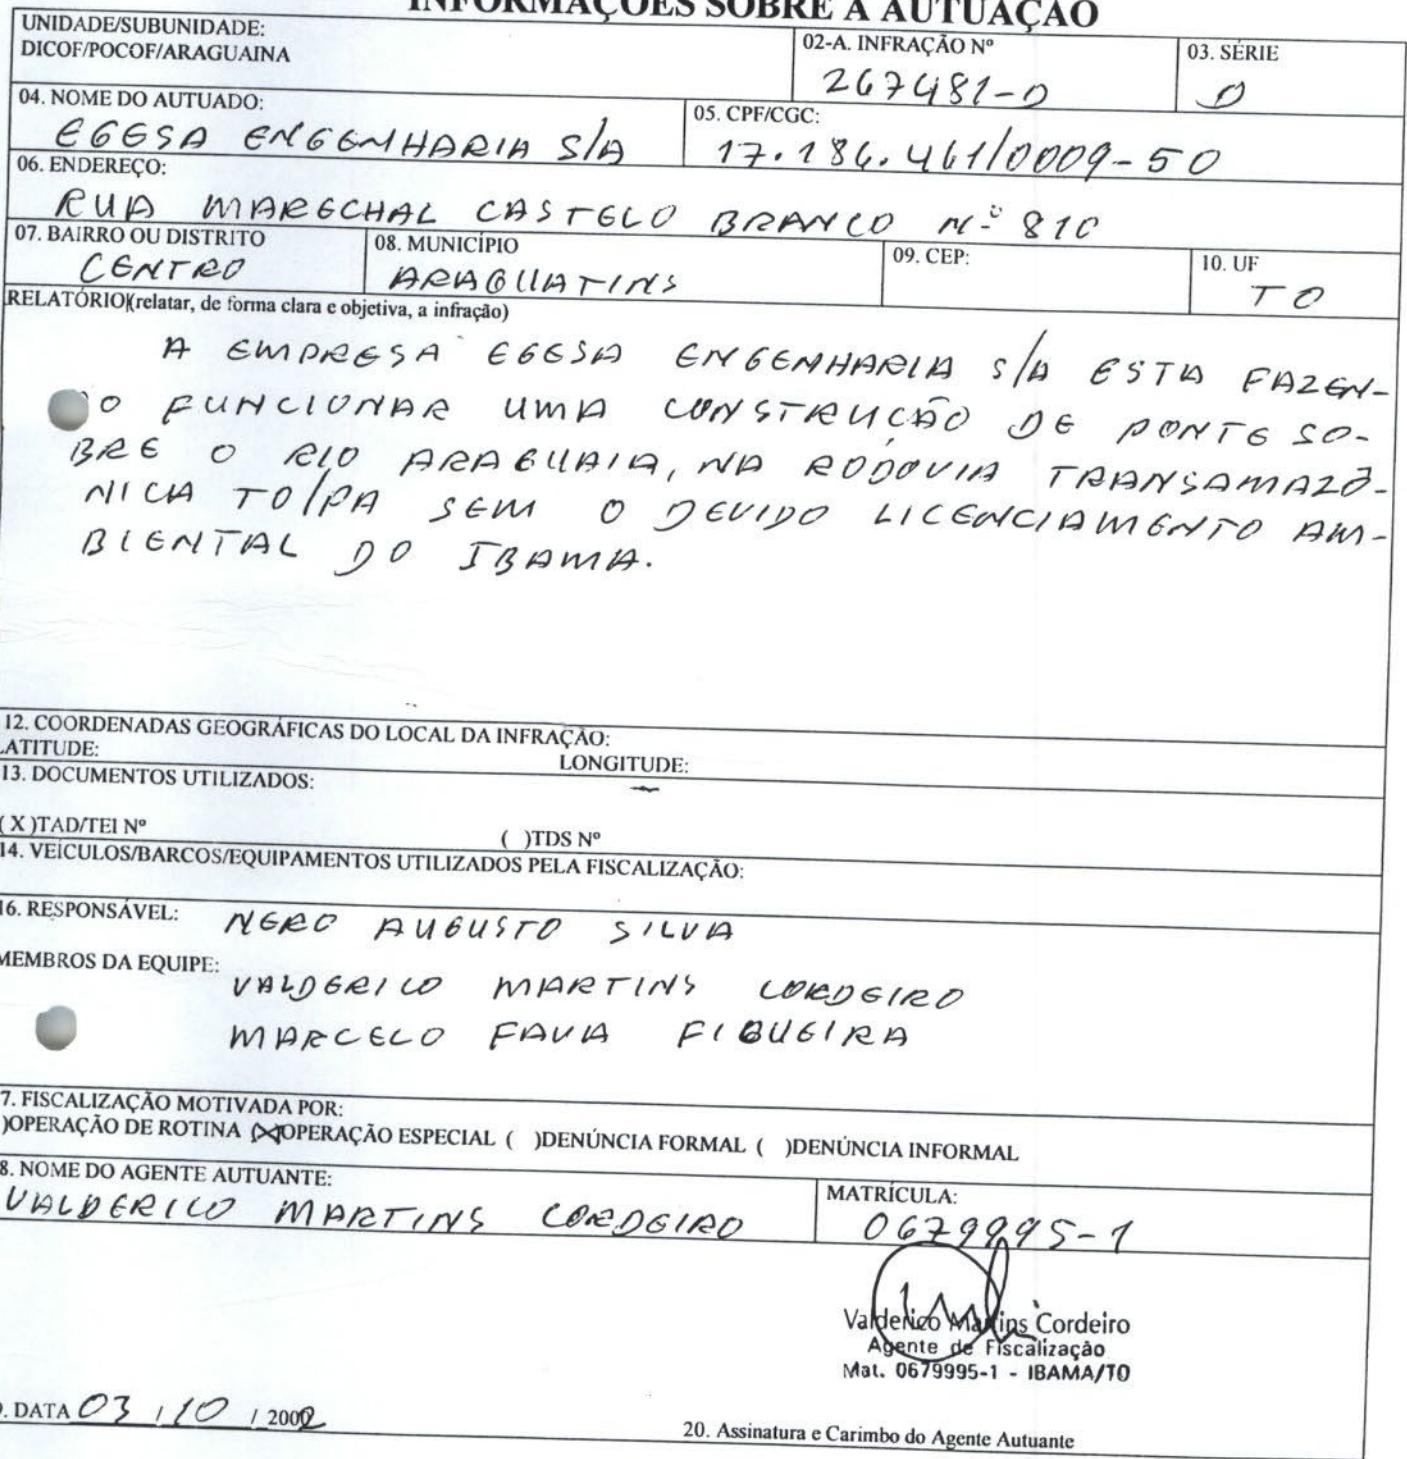 INFORMAÇÕES SOBRE A AUTUAÇÃO
UNIDADE/SUBUNIDADE:
DICOF/POCOF/ARAGUAINA
02-A. INFRAÇÃO Nº
267481-D
03. SÉRIE
D
04. NOME DO AUTUADO:
EGESA ENGENHARIA S/A
05. CPF/CGC:
17.186.461/0009-50
06. ENDEREÇO:
RUA MARECHAL CASTELO BRANCO Nº 810
07. BAIRRO OU DISTRITO
CENTRO
08. MUNICÍPIO
ARAGUATINS
09. CEP:
10. UF
TO
RELATÓRIO(relatar, de forma clara e objetiva, a infração)
A EMPRESA EGESA ENGENHARIA S/A ESTA FAZEN-
DO FUNCIONAR UMA CONSTRUÇÃO DE PONTE SO-
BRE O RIO ARAGUAIA, NA RODOVIA TRANSAMAZÔ-
NICA TO/PA SEM O DEVIDO LICENCIAMENTO AM-
BIENTAL DO IBAMA.
12. COORDENADAS GEOGRÁFICAS DO LOCAL DA INFRAÇÃO:
LATITUDE: LONGITUDE:
13. DOCUMENTOS UTILIZADOS:
( X )TAD/TEI Nº ( )TDS Nº
14. VEÍCULOS/BARCOS/EQUIPAMENTOS UTILIZADOS PELA FISCALIZAÇÃO:
16. RESPONSÁVEL: NERO AUGUSTO SILVA
MEMBROS DA EQUIPE:
VALDERICO MARTINS CORDEIRO
MARCELO FAVA FIGUEIRA
7. FISCALIZAÇÃO MOTIVADA POR:
)OPERAÇÃO DE ROTINA (X)OPERAÇÃO ESPECIAL ( )DENÚNCIA FORMAL ( )DENÚNCIA INFORMAL
8. NOME DO AGENTE AUTUANTE:
VALDERICO MARTINS CORDEIRO
MATRÍCULA:
0679995-1
Valderico Martins Cordeiro
Agente de Fiscalização
Mat. 0679995-1 - IBAMA/TO
. DATA 03 / 10 / 2002
20. Assinatura e Carimbo do Agente Autuante